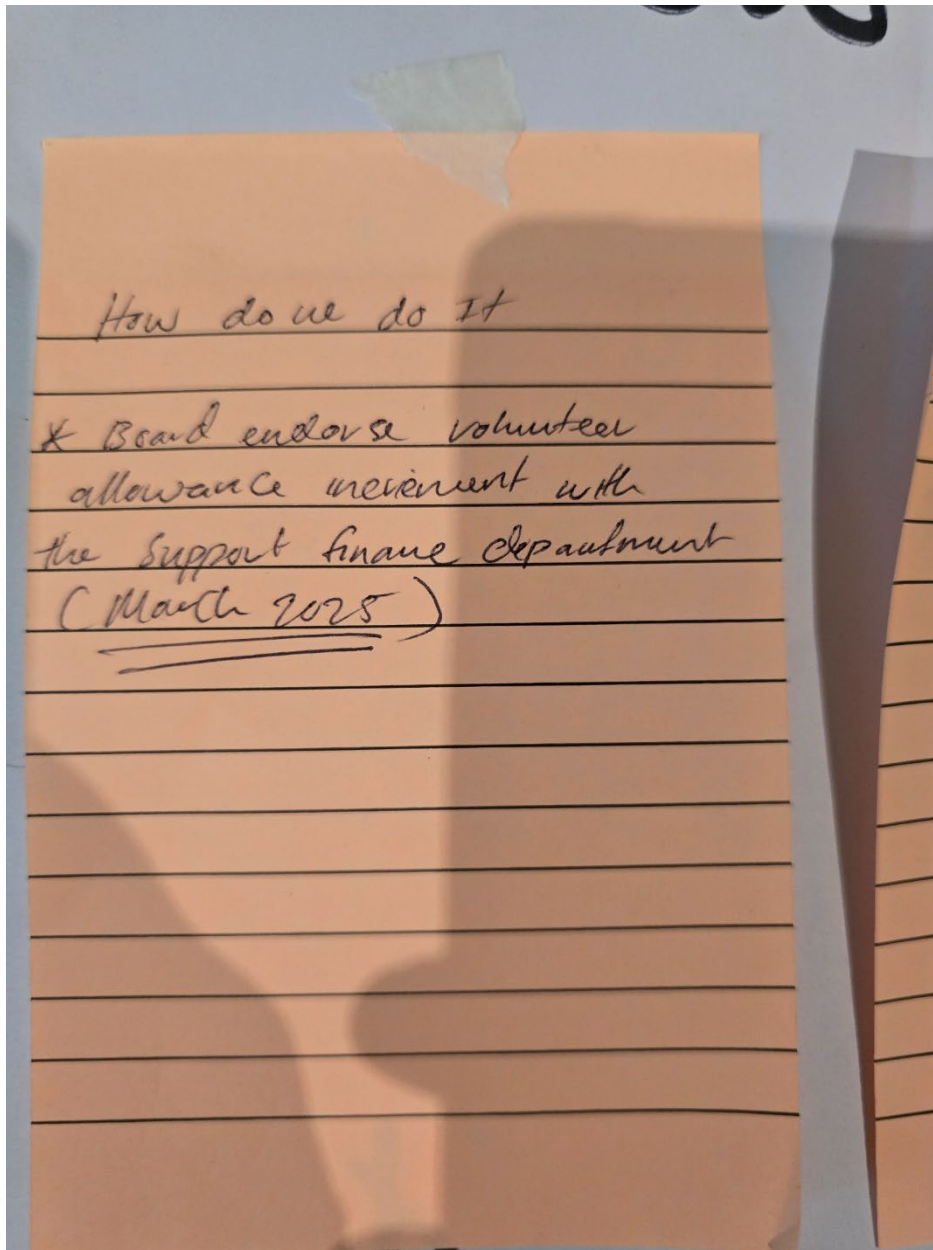 How do we do It
* Board endorse volunteer
allowance increment with
the Support finance department
(March 2025)